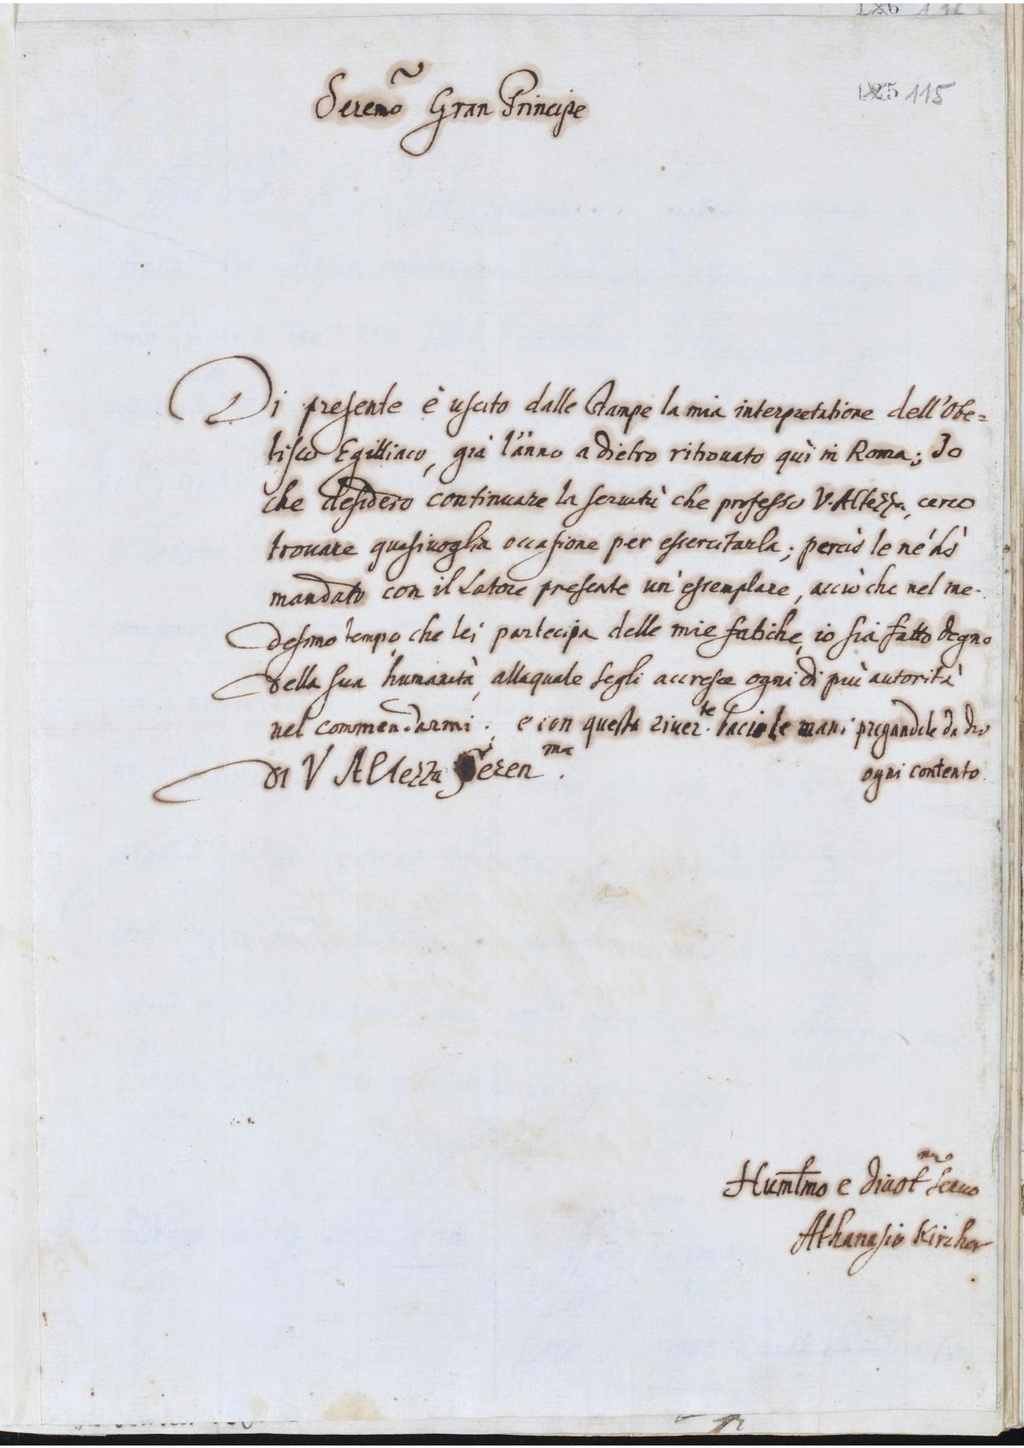 115
Serenmo Gran Principe
Di presente è uscito dalle stampe la mia interpretatione dell'Obe=
lisco Egittiaco, già l'anno a dietro ritrouato quì in Roma; Io
che desidero continuare la seruitù che professo V. Altezza, cerco
trouare qualsiuoglia occasione per essercitarla; perciò le ne hò
mandato con il Latore presente un' essemplare, acciò che nel me-
desimo tempo, che lei partecipa delle mie fatiche, io sia fatto degno
della sua humanità, allaquale segli accresce ogni dì più autorità
nel commendarmi; e con questa riuer.te bacio le mani pregandole da Dio
ogni contento.
di V Altezza Seren.ma
Humlmo e diuotmo seruo
Athanasio Kircher